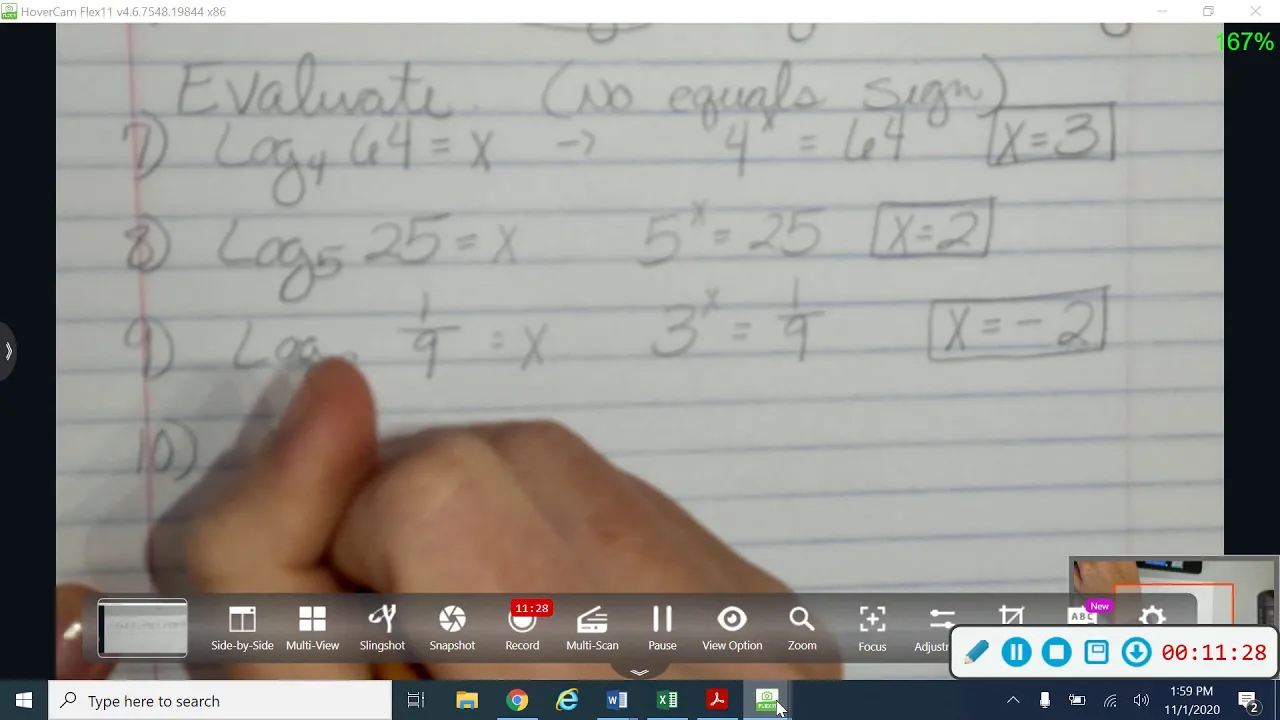 HoverCam Flex11 v4.6.7548.19844 x86
167%
Evaluate (No equals sign)
7) Log₄ 64 = x → 4ˣ = 64 x = 3
8) Log₅ 25 = x 5ˣ = 25 x = 2
9) Log 1/9 = x 3ˣ = 1/9 x = -2
10)
Side-by-Side Multi-View Slingshot Snapshot 11:28 Record Multi-Scan Pause View Option Zoom Focus ABC New
00:11:28
Type here to search
FLEX11
1:59 PM
11/1/2020
2